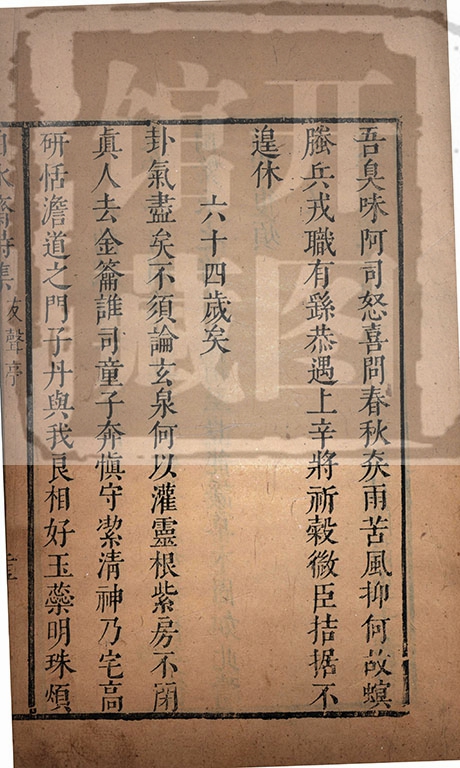 吾臭味阿司怒喜問春秋炎雨苦風抑何故螟
螣兵戎職有繇恭遇上辛將祈穀微臣拮据不
遑休
六十四歲矣
卦氣盡矣不須論玄泉何以灌靈根紫房不閉
眞人去金籥誰司童子奔愼守潔清神乃宅高
研恬澹道之門子丹與我良相好玉蘂明珠煩
齋詩集
聲亭
開圖
館藏